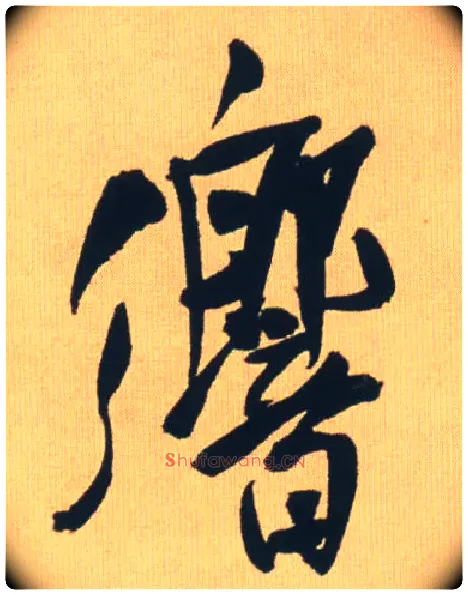 響
Shufawang.CN